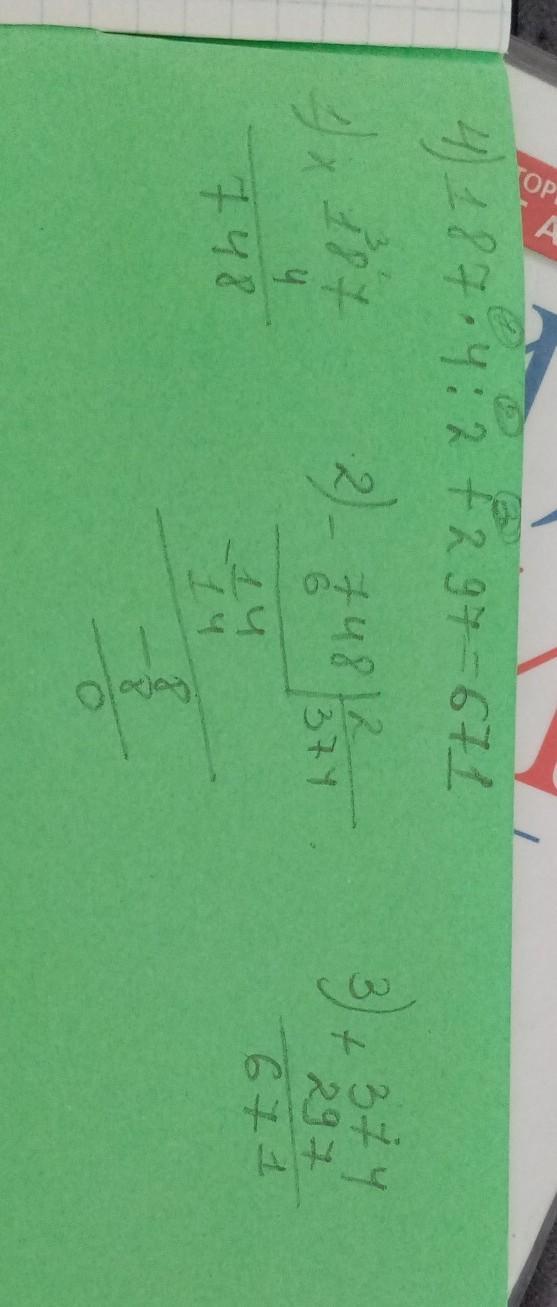 4) 187 · 4 : 2 + 297 = 671
1) × 187
4
748
2) - 748 | 2
6 | 374
- 14
14
- 8
8
0
3) + 374
297
671